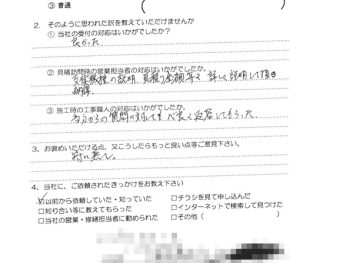 ③ 普通 ( )
2. そのように思われた訳を教えていただけませんか
① 当社の受付の対応はいかがでしたか？
良かった
② 見積訪問時の営業担当者の対応はいかがでしたか。
説明、見積り金額等を詳しく説明して頂き
納得。
③ 施工時の工事職人の対応はいかがでしたか？
質問に対しても良く返答してもらった
3. お褒めいただける点、又こうしたらもっと良い点等ご意見下さい。
特に無し。
4. 当社に、ご依頼されたきっかけをお教え下さい
☑以前から依頼していた・知っていた □チラシを見て申し込んだ
□知り合い等に教えてもらった □インターネットで検索して見つけた
□当社の営業・修繕担当者に勧められた □その他（